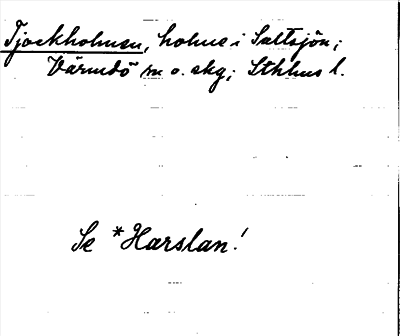 Tjockholmen, holme i Saltsjön;
Värmdö sn o. skg; Sthlms l.
Se *Harslan!